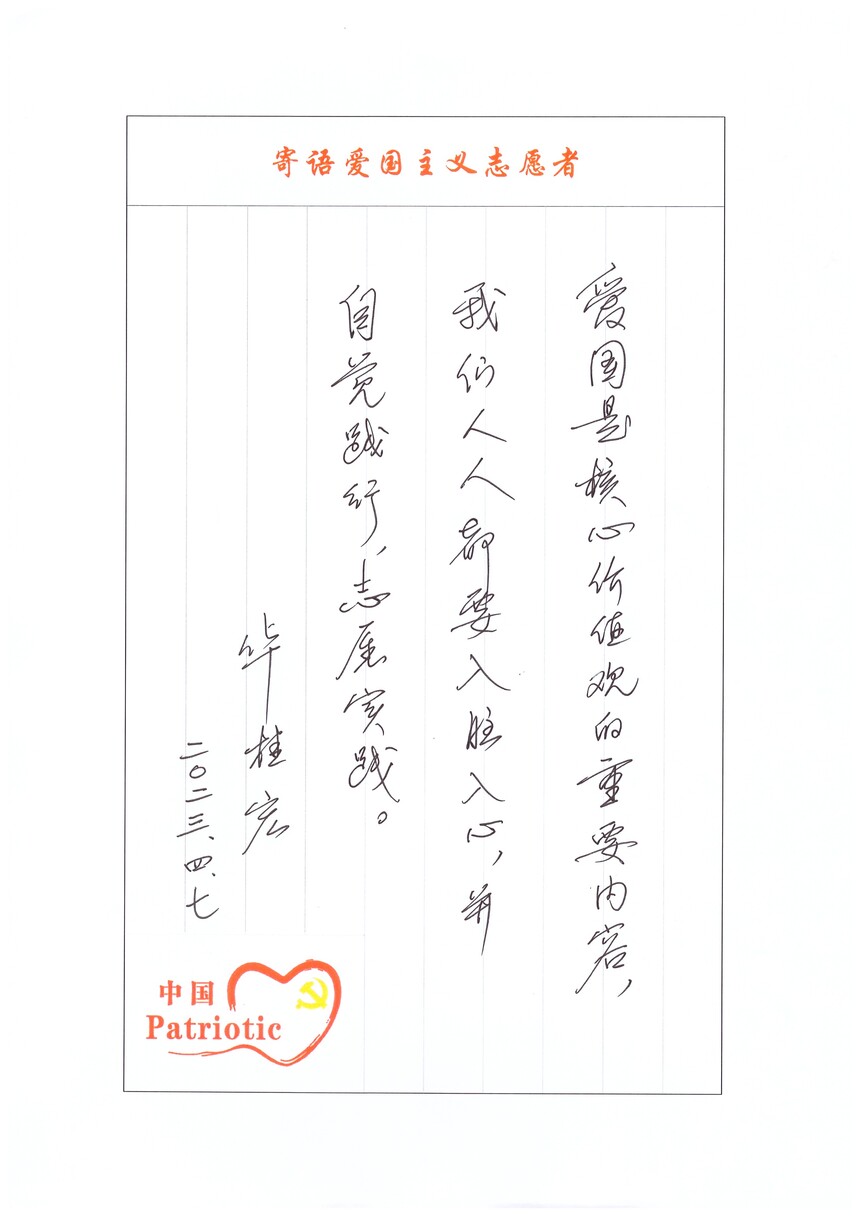 寄语爱国主义志愿者
爱国是核心价值观的重要内容,
我们人人都要入脑入心,并
自觉践行,志愿实践。
华桂宏
二〇二三、四、七
中国
Patriotic